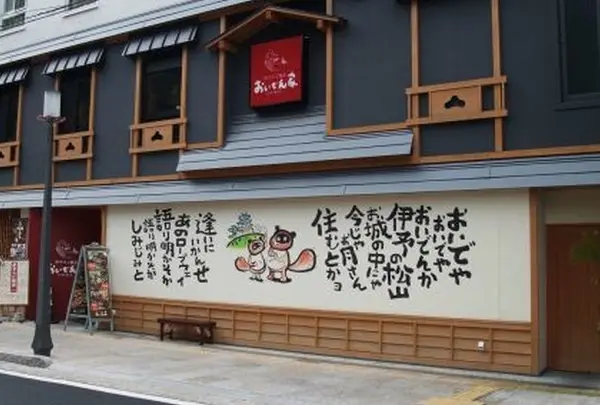 おいでん家
おいでや
おいでや
おいでんか
伊予の松山
お城の中にゃ
今じゃお月さん
住むとかヨ
逢いに
いかんせ
あのロープウェイ
語り明かそか
語り明かそか
しみじみと
おいでん家